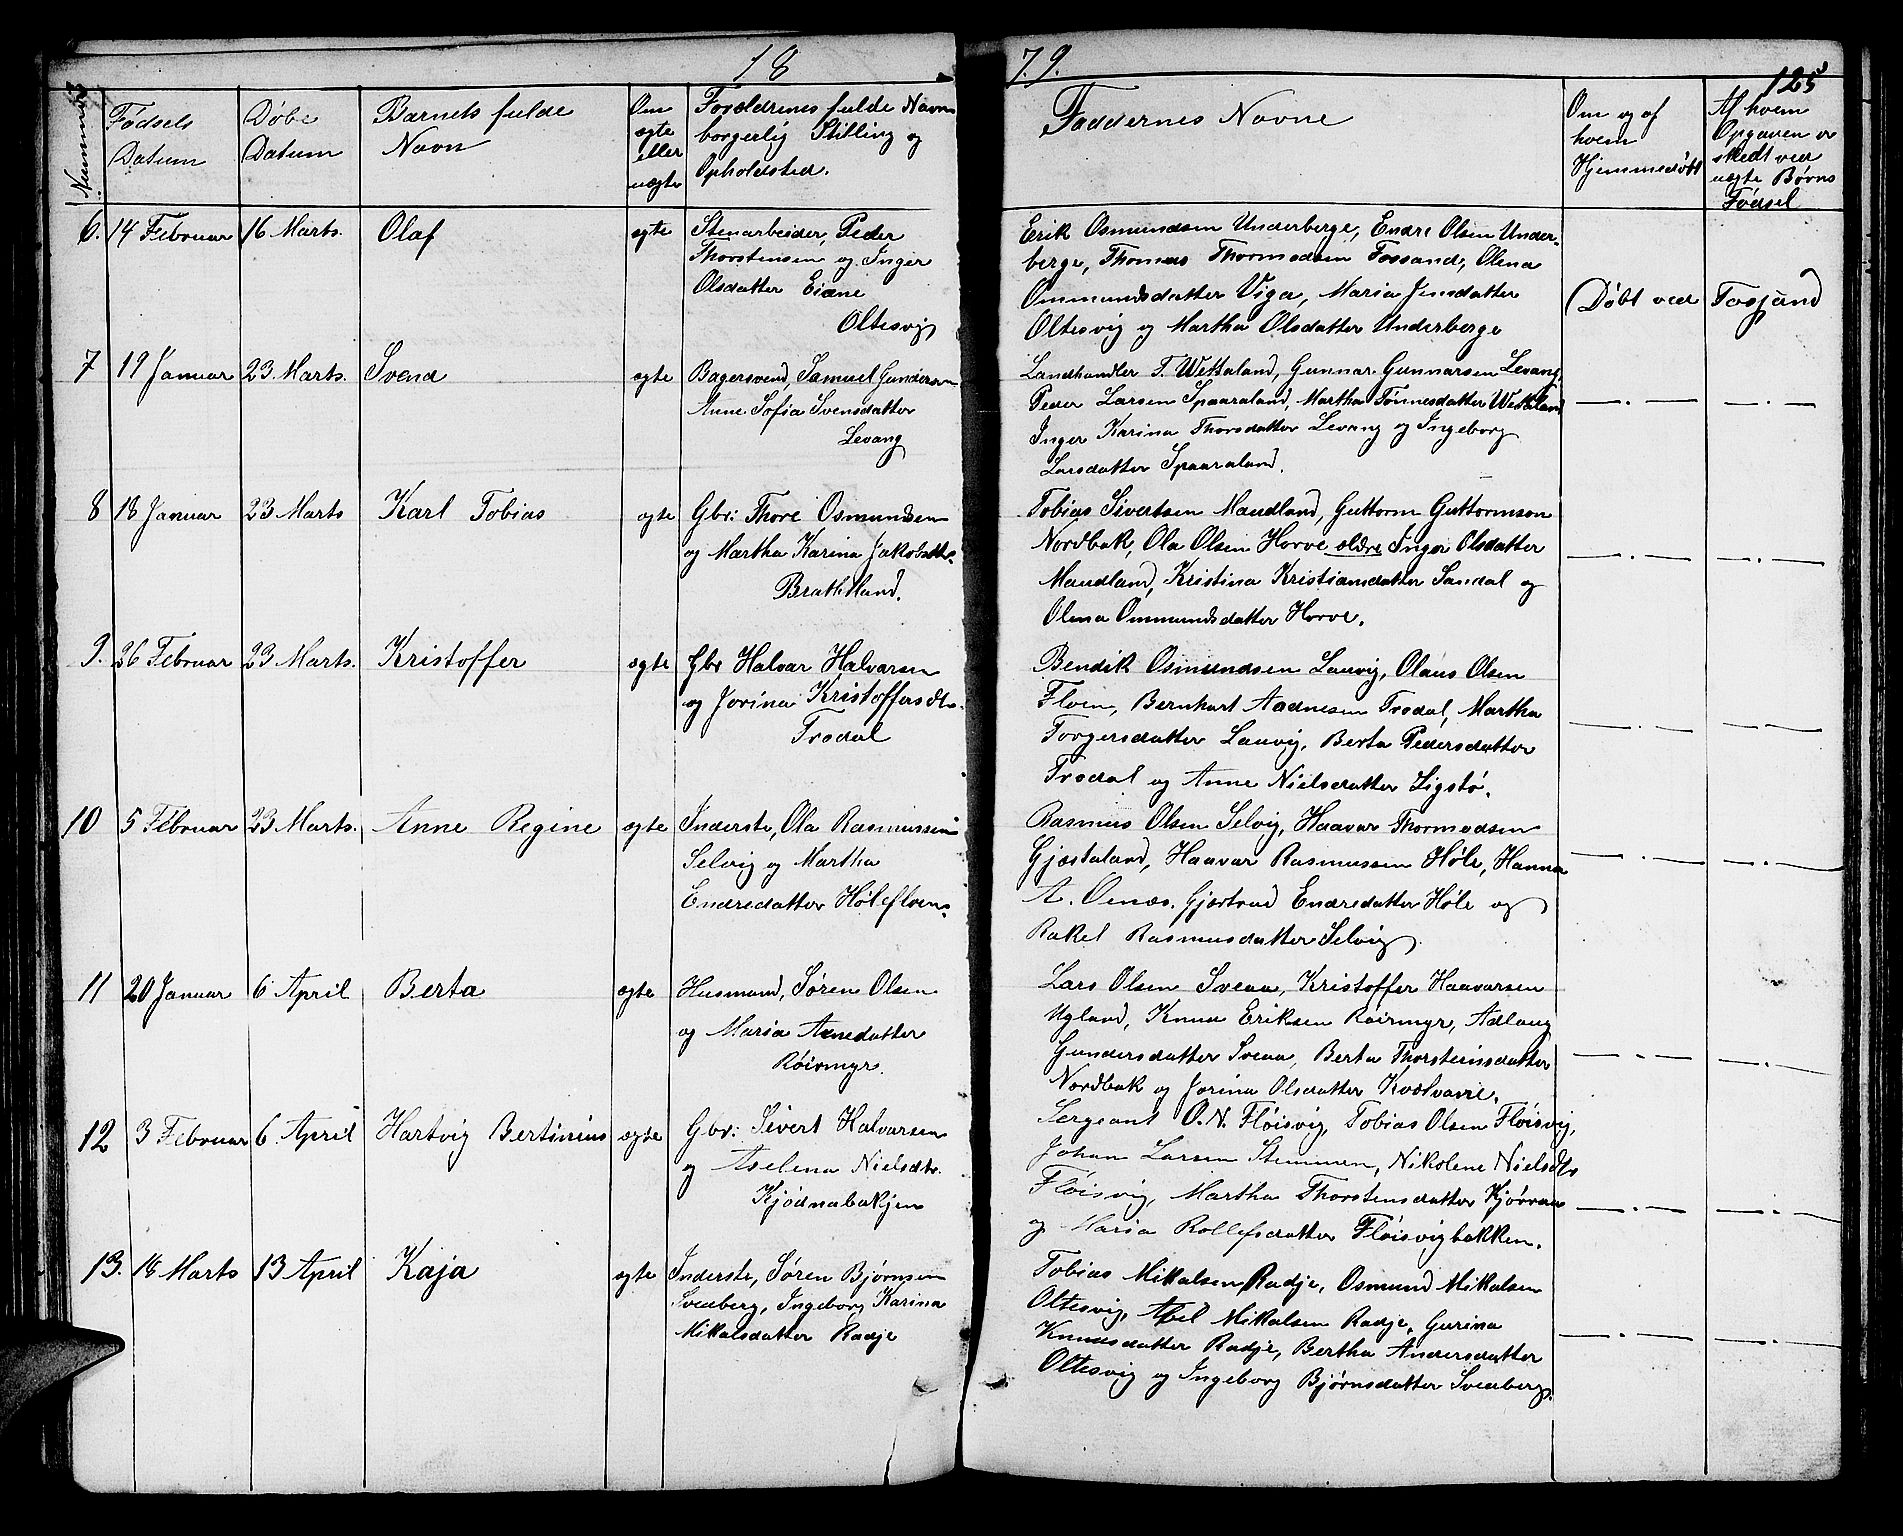 18
79.
125
Nummer
Fødsels
Datum
Døbe
Datum
Barnets fulde
Navn
Om
ægte
eller
uægte
Forældrenes fulde Navn
borgerlig Stilling og
Opholdsted.
Faddernes Navne
Om og af
hvem
Hjemmedøbt
Af hvem
Opgaven er
skedt ved
uægte Børns
Fødsel
6. 14 Februar 16 Marts. Olaf ægte
Stenarbeider, Peder
Thorstensen og Inger
Olsdatter Eiane
Oltesvig
Erik Osmundsen Underberge, Endre Olsen Under-
berge, Thomas Thormodsen Fossand, Olena
Ommundsdatter Viga, Maria Jensdatter
Oltesvig og Martha Olsdatter Underberge
Døbt ved Fosjand
7 19 Januar 23 Marts. Svend ægte
Bagersvend, Samuel Gundersen
Anne Sofia Svensdatter
Levang
Landhandler T. Wetteland, Gunnar Gunnarsen Levang
Peder Larsen Spaaraland, Martha Tønnesdatter Wetteland
Inger Karina Thorsdatter Levang og Ingeborg
Larsdatter Spaaraland.
8 18 Januar 23 Marts Karl Tobias ægte
Gbr: Thore Osmundsen
og Martha Karina Jakobsdtr.
Brattland.
Tobias Sivertsen Maudland, Guttorm Guttormson
Nordbak, Ola Olsen Horve ældre Inger Olsdatter
Maudland, Kristina Kristiansdatter Sandal og
Olena Ommundsdatter Horve.
9. 26 Februar 23 Marts. Kristoffer ægte
Gbr Halvar Halvarsen
og Jorina Kristoffersdtr.
Trodal
Bendik Osmundsen Lauvig, Olaus Olsen
Floen, Bernhart Aadnesen Trodal, Martha
Torgersdatter Lauvig, Berta Pedersdatter
Trodal og Anne Nielsdatter Ligstø.
10 5 Februar 23 Marts. Anne Regine ægte
Inderste, Ola Rasmussen
Selvig og Martha
Endredatter Hølefloen.
Rasmus Olsen Selvig, Haavar Thormodsen
Gjæstaland, Haavar Rasmussen Høle, Hanna
A. Oenæs, Gjærtrud Endredatter Høle og
Rakel Rasmusdatter Selvig.
11 20 Januar 6 April Berta ægte
Husmand, Søren Olsen
og Maria Arnedatter
Røirmyr.
Lars Olsen Sveaa, Kristoffer Haavarsen
Ugland, Knud Eriksen Røirmyr, Adlaug
Gundersdatter Sveaa, Berta Thorsteinsdatter
Nordbak og Jorina Olsdatter Kvælvane.
12 3 Februar 6 April Hartvig Bertinius ægte
Gbr: Sivert Halvarsen
og Aselena Nielsdtr.
Kjødnabakjen
Sergeant O. N. Fløisvig, Tobias Olsen Fløisvig,
Johan Larsen Stemmen, Nikolene Nielsdtr
Fløisvig, Martha Thorstensdatter Kjøvraa
og Maria Rollefsdatter Fløisvigbakken.
13. 18 Marts 13 April Kaja ægte
Inderste, Søren Bjørnsen
Sveaberg, Ingeborg Karina
Mikalsdatter Radje
Tobias Mikalsen Radje, Osmund Mikalsen
Oltesvig, Abel Mikalsen Radje, Gurina
Knudsdatter Radje, Bertha Andersdatter
Oltesvig og Ingeborg Bjørnsdatter Sveaberg.